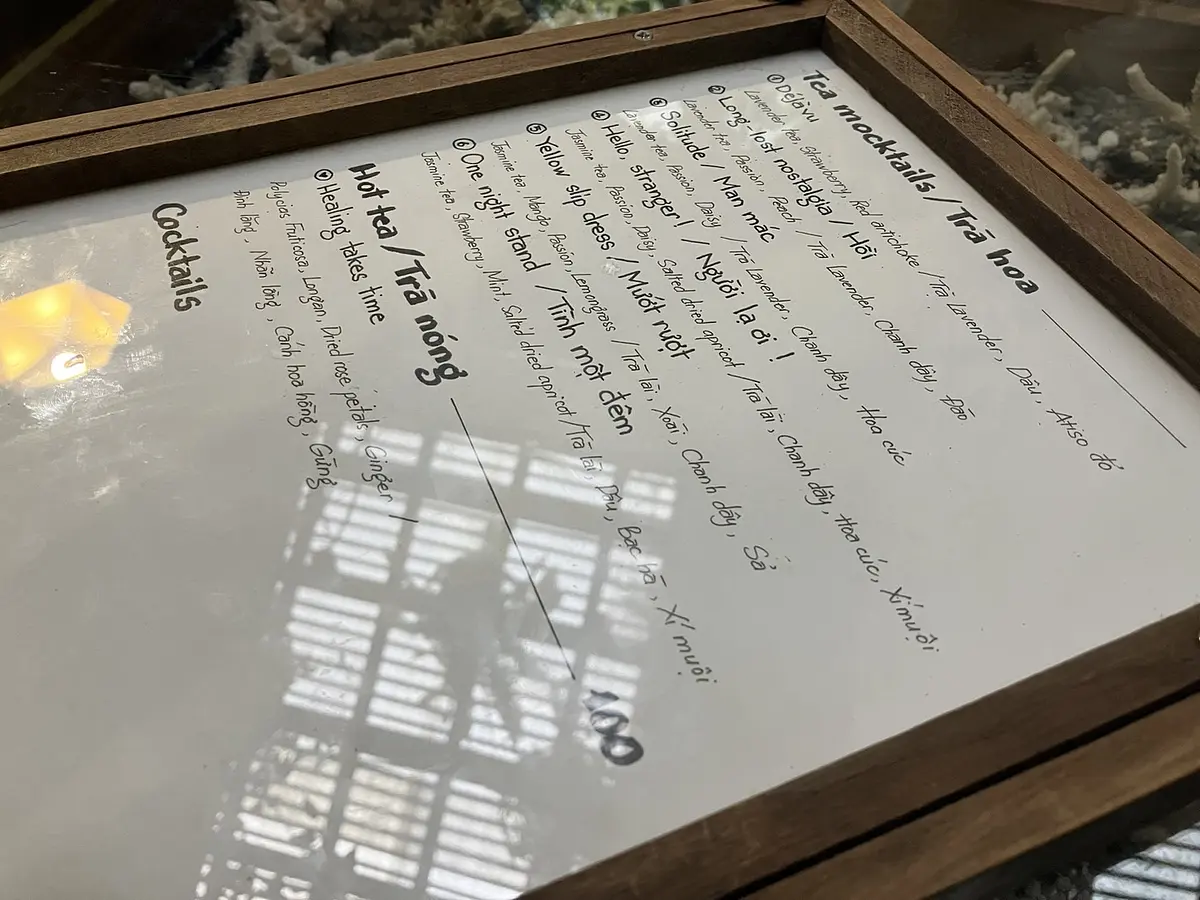 Tea mocktails / Trà hoa
① Déjà vu
Lavender tea, Strawberry, Red artichoke / Trà Lavender, Dâu, Atiso đỏ
② Long-lost nostalgia / Hồi
Lavender tea, Passion, Peach / Trà Lavender, Chanh dây, Đào
③ Solitude / Man mác
Lavender tea, Passion, Daisy / Trà Lavender, Chanh dây, Hoa cúc
④ Hello, stranger! / Người lạ ơi !
Jasmine tea, Passion, Daisy, Salted dried apricot / Trà lài, Chanh dây, Hoa cúc, Xí muội
⑤ Yellow slip dress / Mướt rượt
Jasmine tea, Mango, Passion, Lemongrass / Trà lài, Xoài, Chanh dây, Sả
⑥ One night stand / Tình một đêm
Jasmine tea, Strawberry, Mint, Salted dried apricot / Trà lài, Dâu, Bạc hà, Xí muội
Hot tea / Trà nóng 100
Healing takes time
Polycias Fruticosa, Longan, Dried rose petals, Ginger /
Đinh lăng, Nhãn lồng, Cánh hoa hồng, Gừng
Cocktails